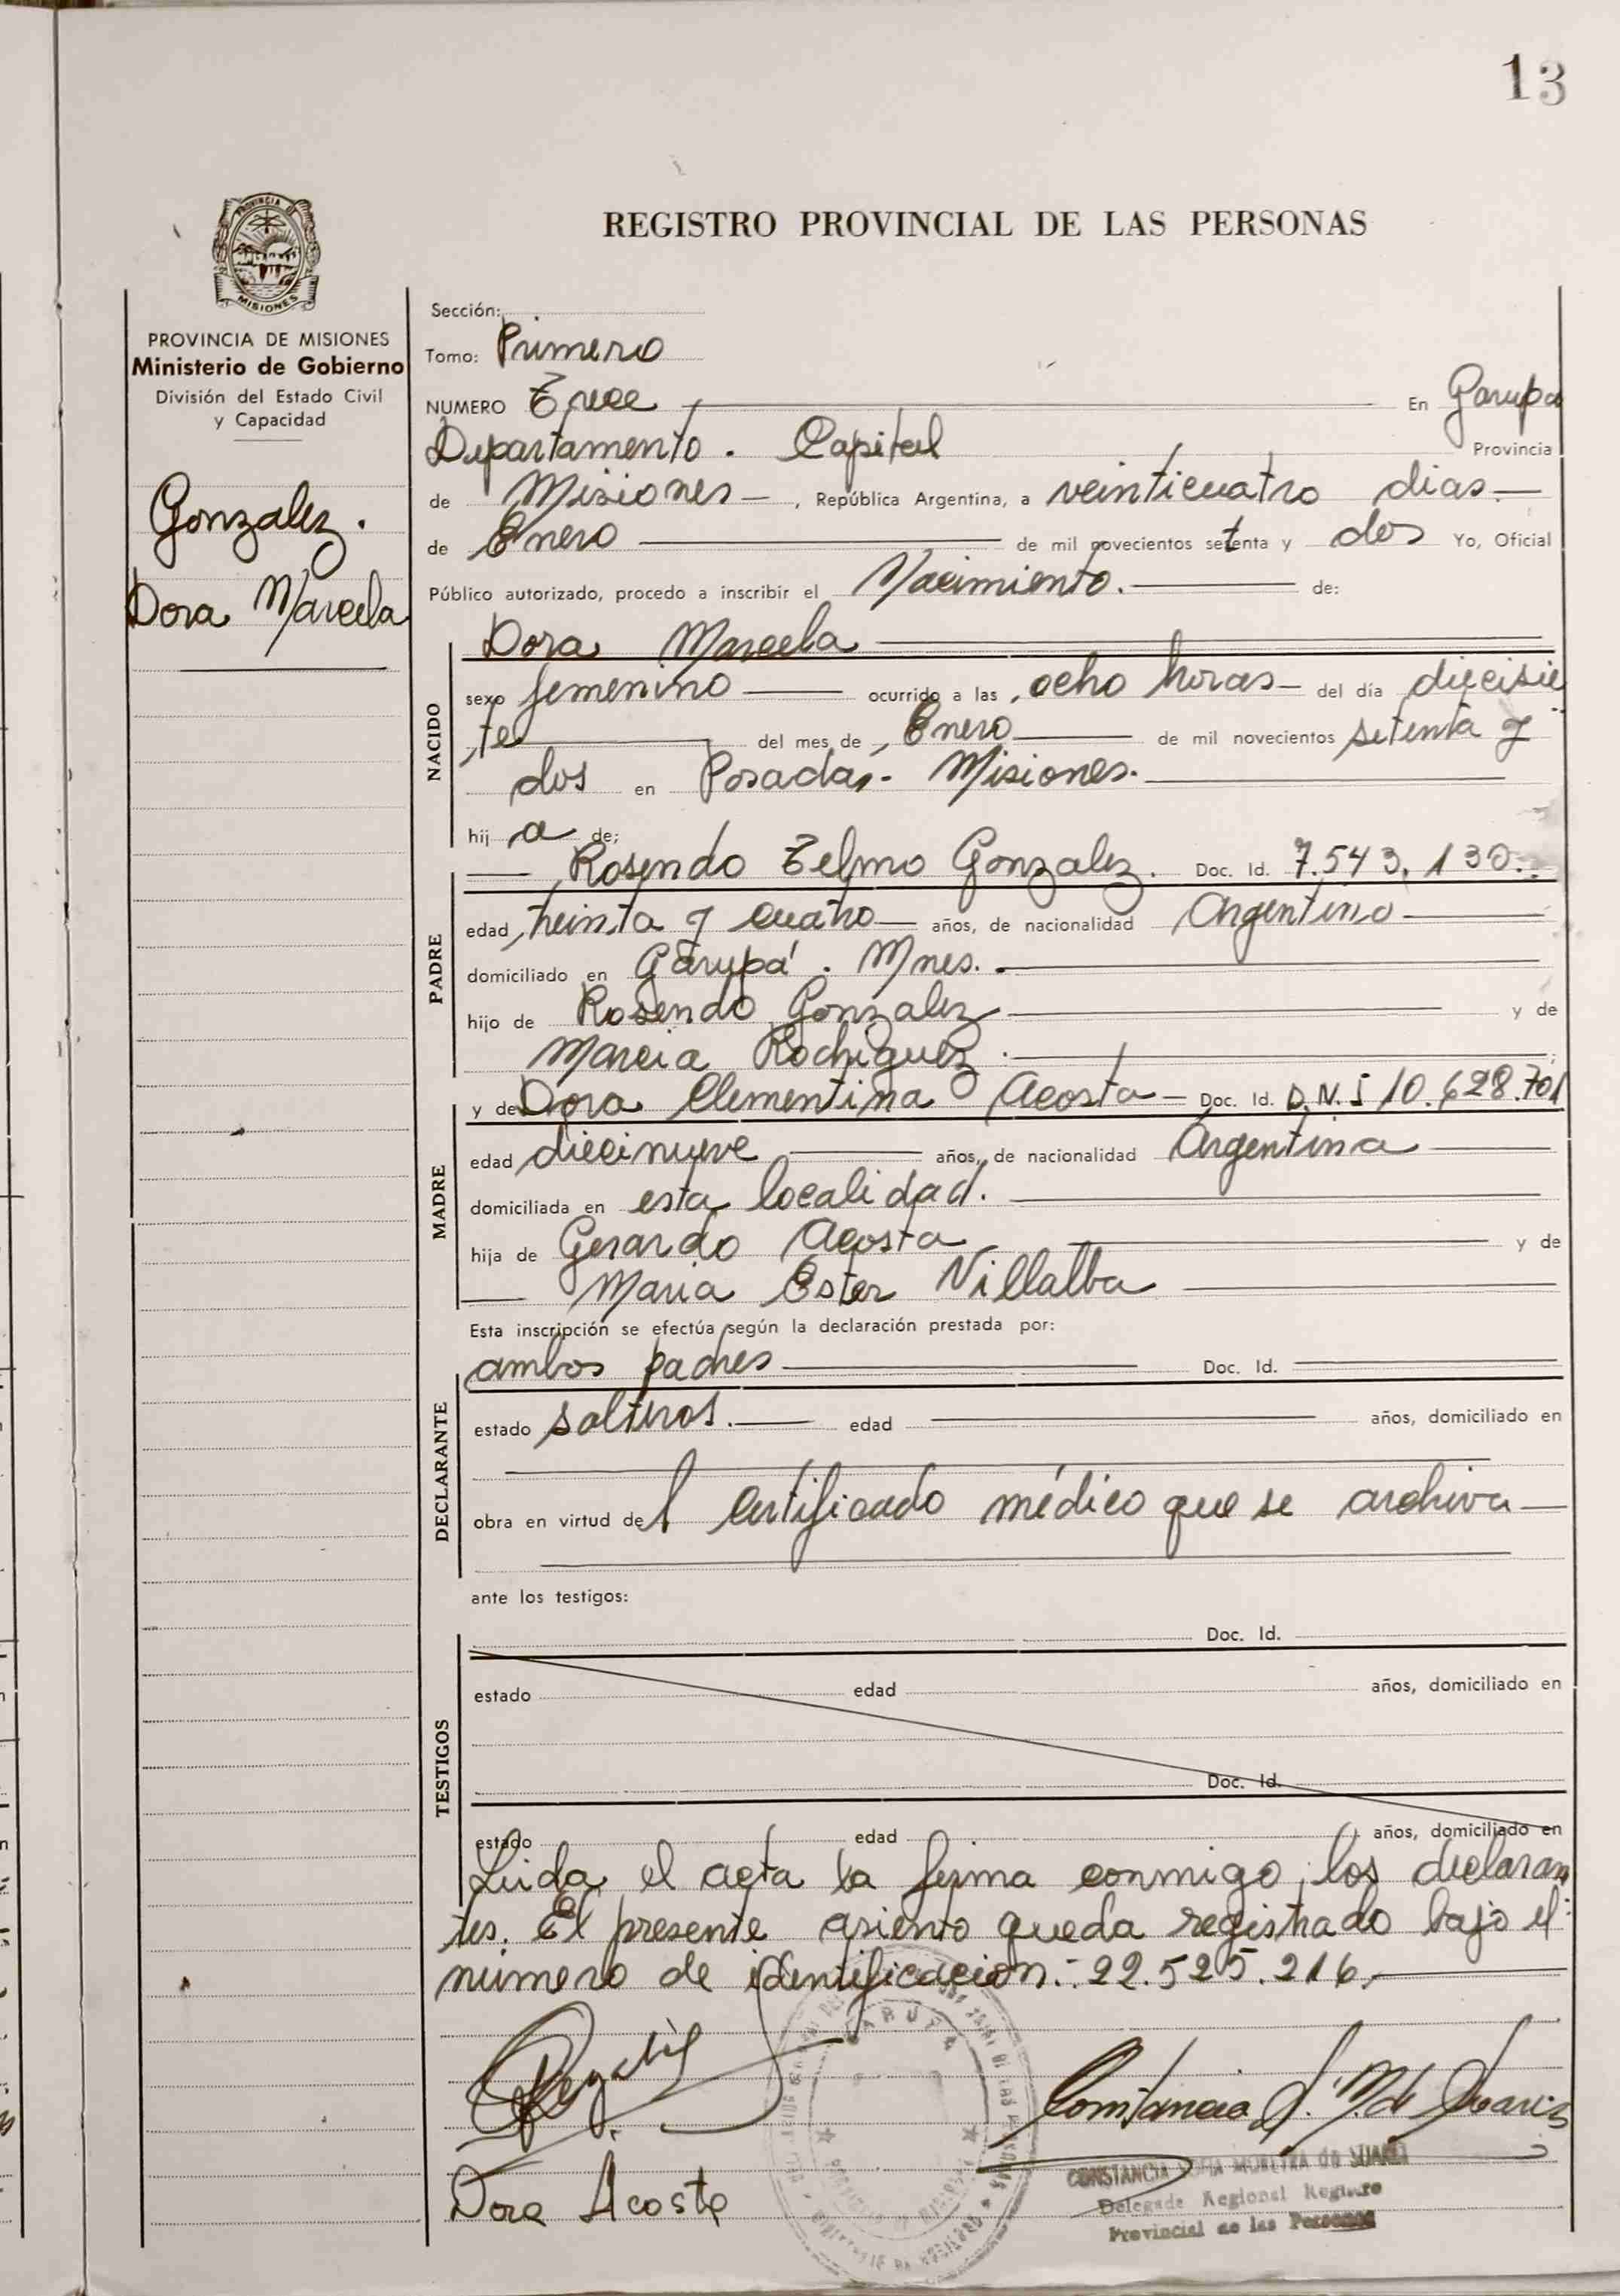 13
PROVINCIA DE
MISIONES
REGISTRO PROVINCIAL DE LAS PERSONAS
PROVINCIA DE MISIONES
Ministerio de Gobierno
División del Estado Civil
y Capacidad
Gonzalez.
Dora Marcela
Sección:
Tomo: Primero
NUMERO Trece En Garupa
Departamento. Capital Provincia
de Misiones, República Argentina, a veinticuatro dias
de Enero de mil novecientos setenta y dos Yo, Oficial
Público autorizado, procedo a inscribir el Nacimiento. de:
NACIDO
Dora Marcela
sexo femenino ocurrido a las ocho horas del día diecisie
te del mes de Enero de mil novecientos setenta y
dos en Posadas. Misiones.
hij a de;
PADRE
Rosendo Telmo Gonzalez. Doc. Id. 7.543.130.
edad treinta y cuatro años, de nacionalidad Argentino
domiciliado en Garupá. Mnes.
hijo de Rosendo Gonzalez y de
Marcia Rodriguez.
MADRE
y de Dora Clementina Acosta Doc. Id. D.N.I 10.628.701
edad diecinueve años, de nacionalidad Argentina
domiciliada en esta localidad.
hija de Gerardo Acosta y de
Maria Ester Villalba
Esta inscripción se efectúa según la declaración prestada por:
DECLARANTE
ambos padres Doc. Id.
estado solteros. edad años, domiciliado en
obra en virtud del certificado médico que se archiva
ante los testigos:
TESTIGOS
Doc. Id.
estado edad años, domiciliado en
Doc. Id.
estado edad años, domiciliado en
Leida el acta la firma conmigo los declaran
tes. El presente asiento queda registrado bajo el
número de identificacion: 22.525.216.
Constancia S. M. de Suarez
CONSTANCIA SOFIA MOREYRA de SUAREZ
Delegada Regional Registro
Provincial de las Personas
Dora Acosta